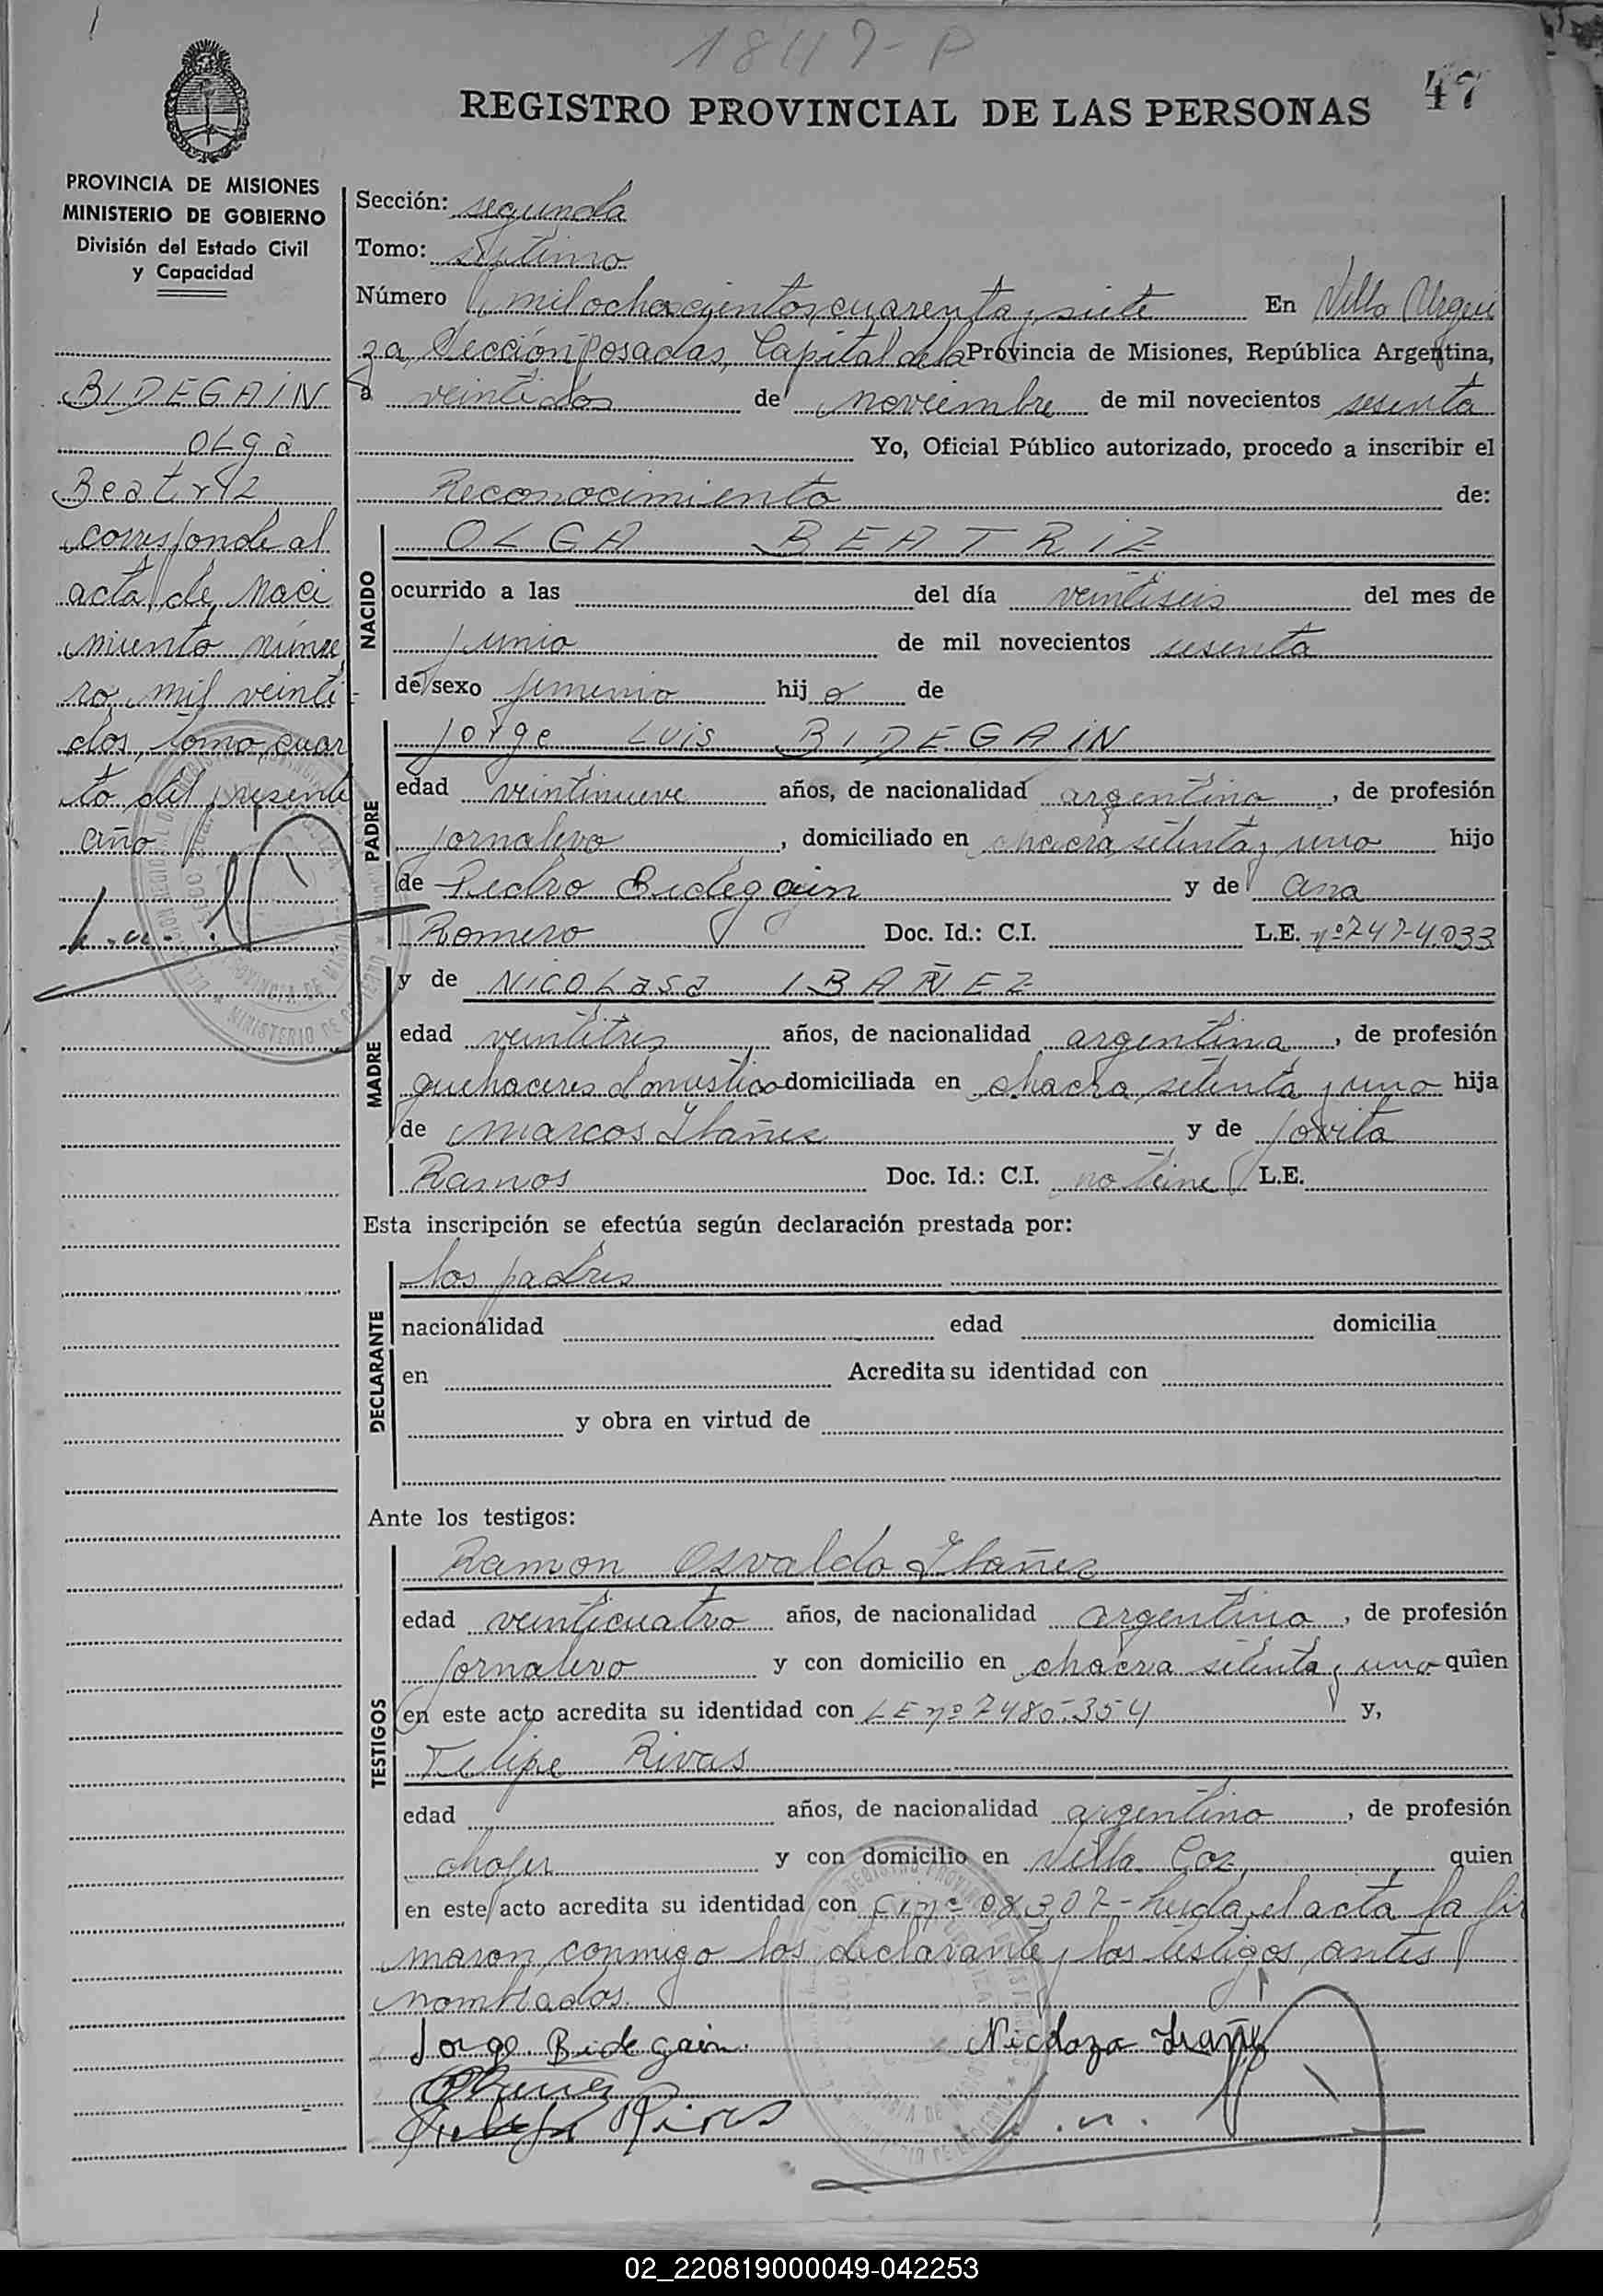 1847-P
47
REGISTRO PROVINCIAL DE LAS PERSONAS
PROVINCIA DE MISIONES
MINISTERIO DE GOBIERNO
División del Estado Civil
y Capacidad
BIDEGAIN
OLga
Beatriz
corresponde al
acta de naci
miento núme
ro mil veinti
dos, tomo cuar
to del presente
año
Sección: segunda
Tomo: séptimo
Número mil ochocientos cuarenta y siete En Villa Urqui
za, Sección Posadas, Capital de la Provincia de Misiones, República Argentina,
a veintidos de noviembre de mil novecientos sesenta
Yo, Oficial Público autorizado, procedo a inscribir el
Reconocimiento de:
NACIDO
OLGA BEATRIZ
ocurrido a las del día veintiseis del mes de
junio de mil novecientos sesenta
de sexo femenino hij a de
PADRE
Jorge Luis BIDEGAIN
edad veintinueve años, de nacionalidad argentino, de profesión
jornalero, domiciliado en chacra setenta y uno hijo
de Pedro Bidegain y de Ana
Romero Doc. Id.: C.I. L.E. nº 747-4.033
MADRE
y de NICOLasa IBAÑEZ
edad veintitres años, de nacionalidad argentina, de profesión
quehaceres domestico domiciliada en chacra setenta y uno hija
de Marcos Ibañez y de Jovita
Ramos Doc. Id.: C.I. no tiene L.E.
Esta inscripción se efectúa según declaración prestada por:
DECLARANTE
los padres
nacionalidad edad domicilia
en Acredita su identidad con
y obra en virtud de
Ante los testigos:
TESTIGOS
Ramon Osvaldo Ibañez
edad veinticuatro años, de nacionalidad argentino, de profesión
jornalero y con domicilio en chacra setenta y uno quien
en este acto acredita su identidad con LE nº 7485.354 y,
Felipe Rivas
edad años, de nacionalidad argentino, de profesión
chofer y con domicilio en Villa Coz, quien
en este acto acredita su identidad con C.I. nº 98.307- Leida el acta la fir
maron conmigo los declarante y los testigos antes
nombrados.
Jorge Bidegain. Nicolaza Ibañez
Felipe Rivas
02_220819000049-042253